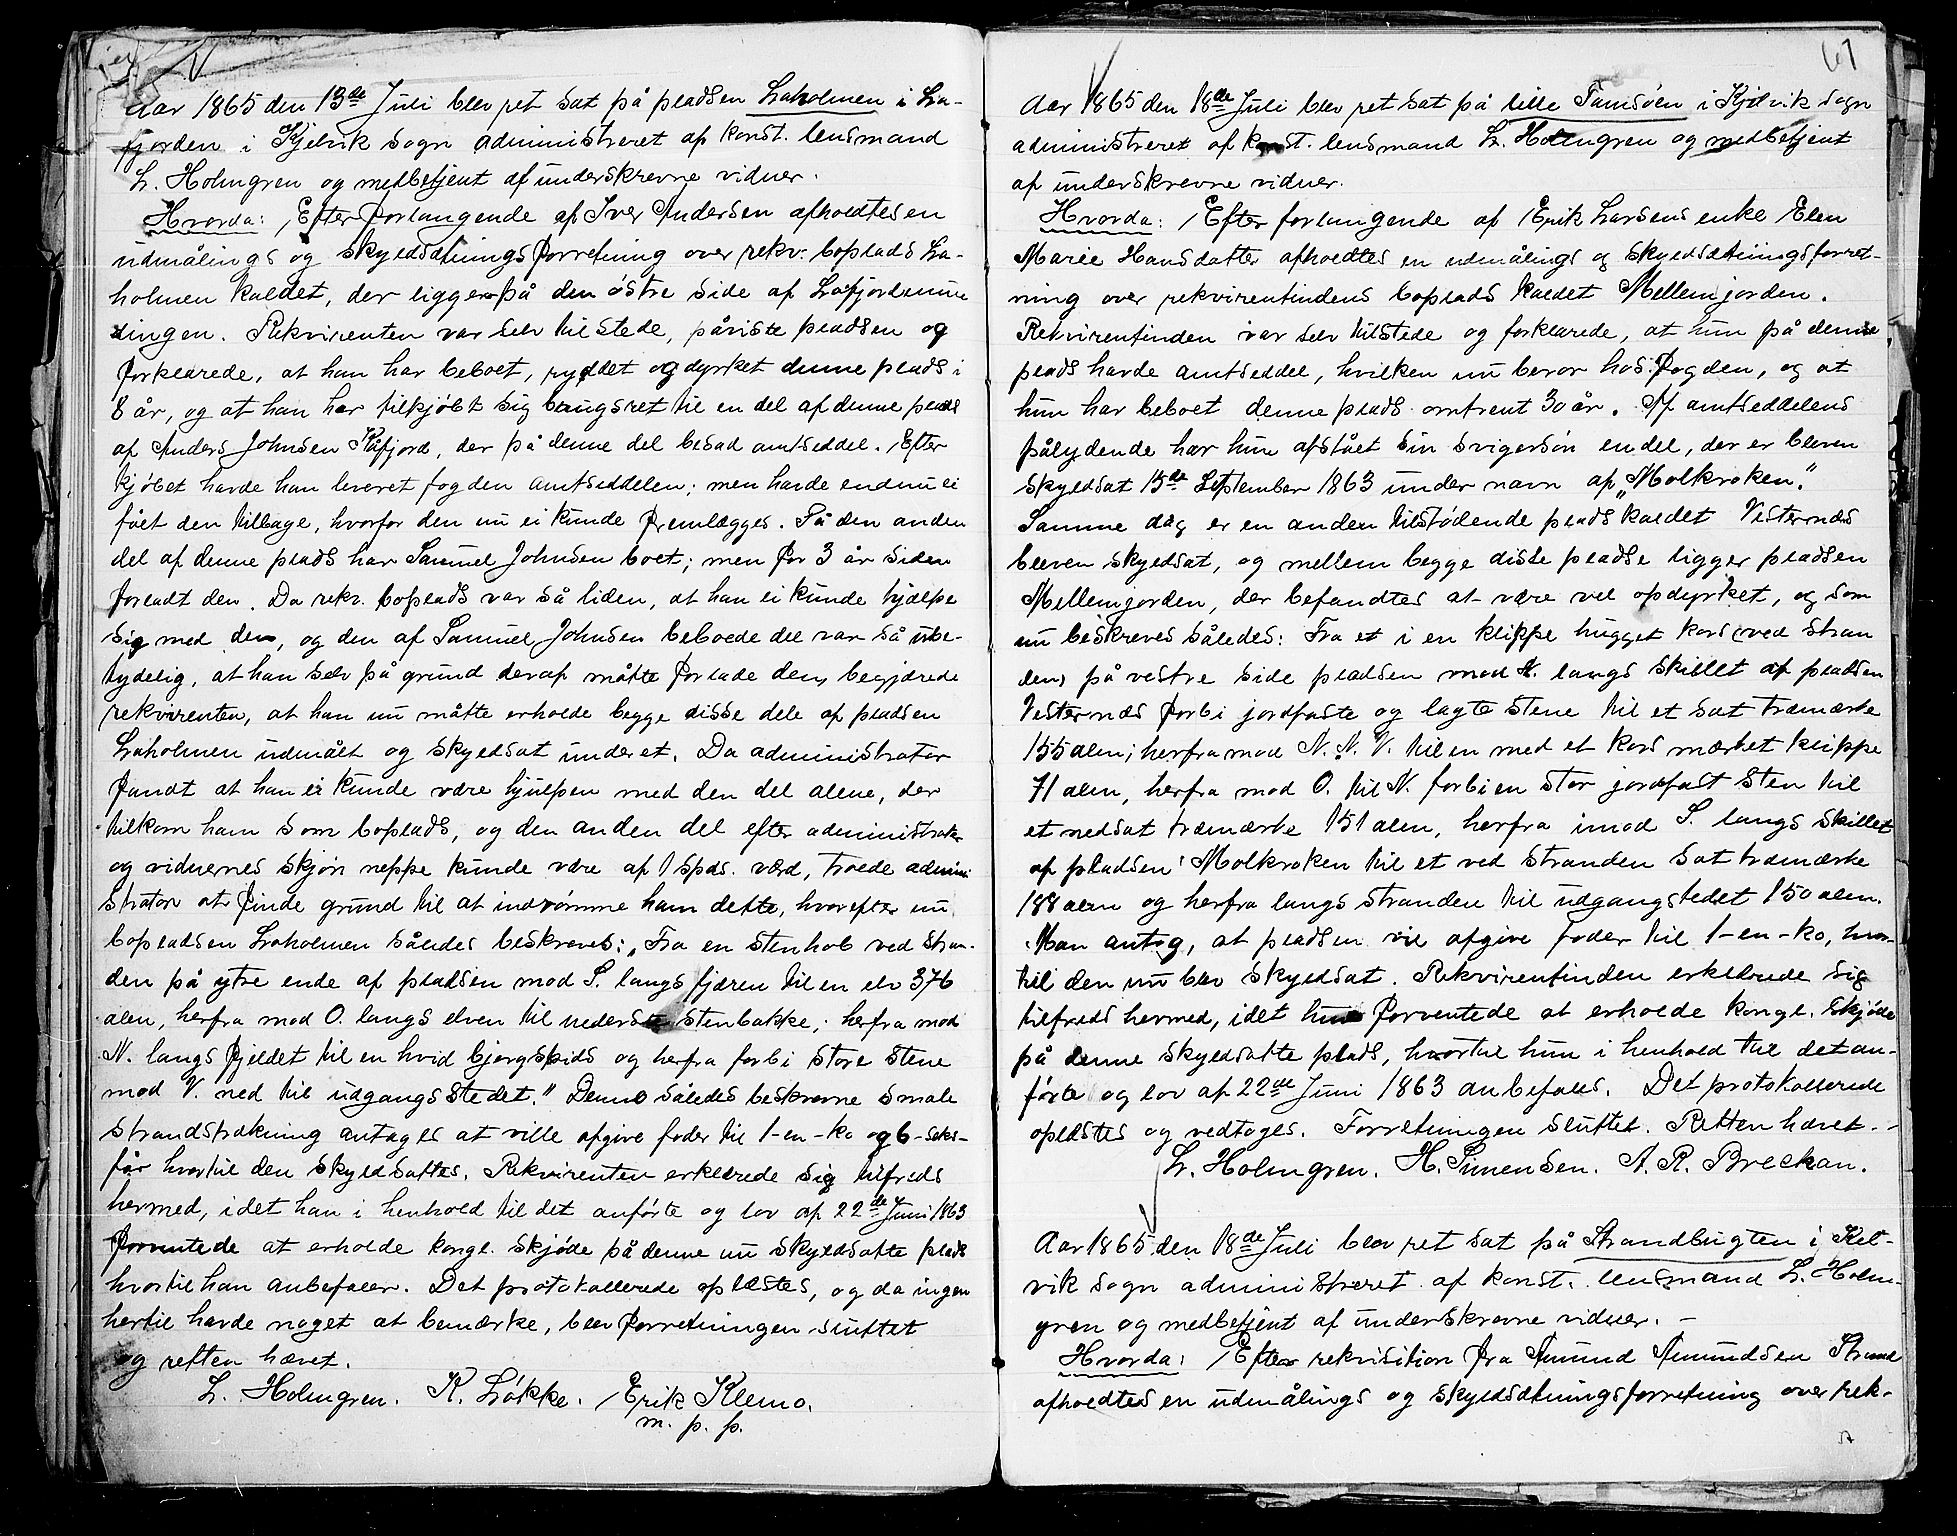 Aar 1865 den 13de Juli blev ret sat på pladsen Laholmen i La-
fjorden i Kjelvik sogn administreret af konst. lensmand
L. Holmgren og medbetjent af underskrevne vidner.
Hvorda: Efter forlangende af Iver Andersen afholdtes en
udmålings og skyldsætningsforretning over rekv. boplads La-
holmen kaldet, der ligger på den östre side af Lafjordmun-
dingen. Rekvirenten var selv tilstede, påviste pladsen og
forklarede, at han har beboet, ryddet og dyrket denne plads i
8 år, og at han har tilkjöbt sig brugsret til en del af denne plads
af Anders Johnsen Kåfjord, der på denne del besad amtseddel. Efter
kjöbet havde han leveret fogden amtseddelen; men havde endnu ei
fået den tilbage, hvorfor den nu ei kunde fremlægges. På den anden
del af denne plads har Samuel Johnsen boet; men for 3 år siden
forladt den. Da rekv. boplads var så liden, at han ei kunde hjælpe
sig med den, og den af Samuel Johnsen beboede del var så ube-
tydelig, at han selv på grund deraf måtte forlade den, begjærede
rekvirenten, at han nu måtte erholde begge disse dele af pladsen
Laholmen udmålt og skyldsat under et. Da administrator
fandt at han ei kunde være hjulpen med den del alene, der
tilkom ham som boplads, og den anden del efter administrator
og vidnernes skjön neppe kunde være af 1 spds. værd, troede admini
strator at finde grund til at indrömme ham dette, hvorefter nu
bopladsen Laholmen således beskreves: "Fra en stenhob ved stran-
den på ytre ende af pladsen mod S. langs fjæren til en elv 376
alen, herfra mod O. langs elven til nederste stenbakke, herfra mod
N. langs fjeldet til en hvid bjergspids og herfra forbi store stene
mod V. ned til udgangsstedet." Denne således beskrevne smale
strandstrækning antages at ville afgive foder til 1-en-ko og 6-seks-
får hvortil den skyldsattes. Rekvirenten erklærede sig tilfreds
hermed, idet han i henhold til det anförte og lov af 22de Juni 1863
forventede at erholde kongl. skjöde på denne nu skyldsatte plads
hvortil han anbefales. Det protokollerede oplæstes, og da ingen
hertil havde noget at bemærke, blev forretningen sluttet
og retten hævet.
L. Holmgren. K. Lökke. Erik Klemo.
m. p. p.
67
Aar 1865 den 18de Juli blev ret sat på lille Tamsöen i Kjelvik sogn
administreret af konst. lensmand L. Holmgren og medbetjent
af underskrevne vidner.
Hvorda: Efter forlangende af Erik Larsens enke Elen
Marie Hansdatter afholdtes en udmålings og skyldsætningsforret-
ning over rekvirentindens boplads kaldet Mellemjorden.
Rekvirentinden var selv tilstede og forklarede, at hun på denne
plads havde amtseddel, hvilken nu beror hos fogden, og at
hun har beboet denne plads omtrent 30 år. Af amtseddelens
pålydende har hun afstået sin svigersön en del, der er bleven
skyldsat 15de September 1863 under navn af "Molkroken."
Samme dag er en anden tilstödende plads kaldet Vesternæs
bleven skyldsat, og mellem begge disse pladse ligger pladsen
Mellemjorden, der befandtes at være vel opdyrket, og som
nu beskreves således: Fra et i en klippe hugget kors (ved stran
den) på vestre side pladsen mod N. langs skillet af pladsen
Vesternæs forbi jordfaste og lagte stene til et sat træmærke
155 alen; herfra mod N. N. V. til en med et kors mærket klippe
71 alen, herfra mod O. til N. forbi en stor jordfast sten til
et nedsat træmærke 151 alen, herfra imod S. langs skillet
af pladsen Molkroken til et ved stranden sat træmærke
188 alen og herfra langs stranden til udgangstedet 150 alen.
Man antog, at pladsen vil afgive foder til 1-en-ko, hvor-
til den nu blev skyldsat. Rekvirentinden erklærede sig
tilfreds hermed, idet hun forventede at erholde kongl. skjöde
på denne skyldsatte plads, hvortil hun i henhold til det an-
förte og lov af 22de Juni 1863 anbefales. Det protokollerede
oplæstes og vedtoges. Forretningen sluttet. Retten hævet.-
L. Holmgren. H. Simensen. A. R. Breckan.
Aar 1865 den 18de Juli blev ret sat på Strandbugten i Kel-
vik sogn administreret af konst. lensmand L. Holm-
gren og medbetjent af underskrevne vidner. -
Hvorda: Efter rekvisition fra Amund Amundsen Strand
afholdtes en udmålings og skyldsætningsforretning over rek-